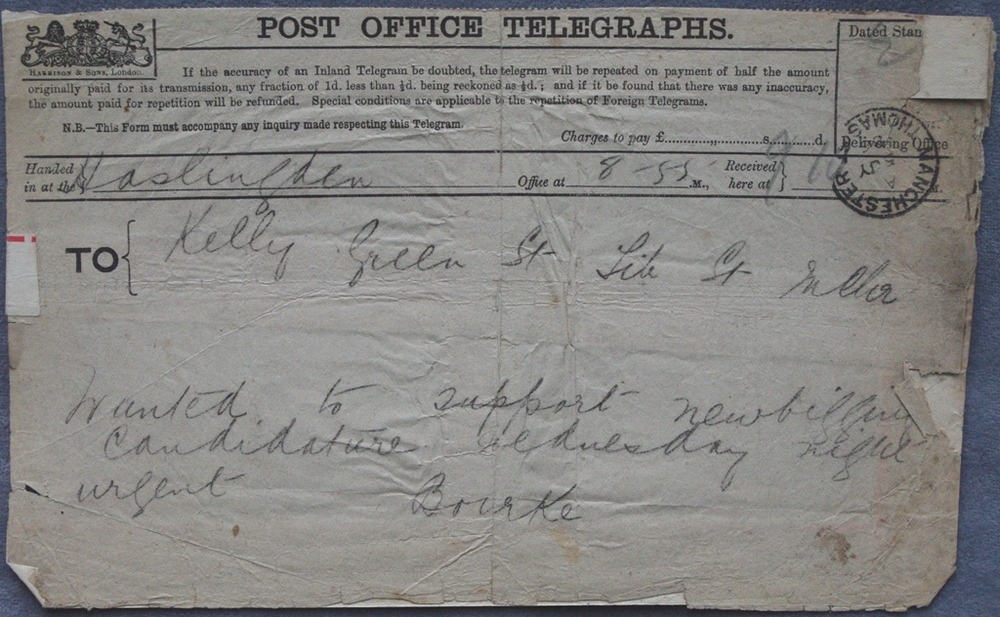 POST OFFICE TELEGRAPHS.
HARRISON & SONS, London.
Dated Stam
If the accuracy of an Inland Telegram be doubted, the telegram will be repeated on payment of half the amount
originally paid for its transmission, any fraction of 1d. less than ½d. being reckoned as ½d.; and if it be found that there was any inaccuracy,
the amount paid for repetition will be refunded. Special conditions are applicable to the repetition of Foreign Telegrams.
N.B.—This Form must accompany any inquiry made respecting this Telegram.
Charges to pay £ s. d.
Delivering Office
MANCHESTER
THOMAS
Handed in at the Haslingden Office at 8-55 M., Received here at M.
TO Kelly Green St Lib St Mchr
Wanted to support newbigging
Candidature wednesday night
urgent Bourke